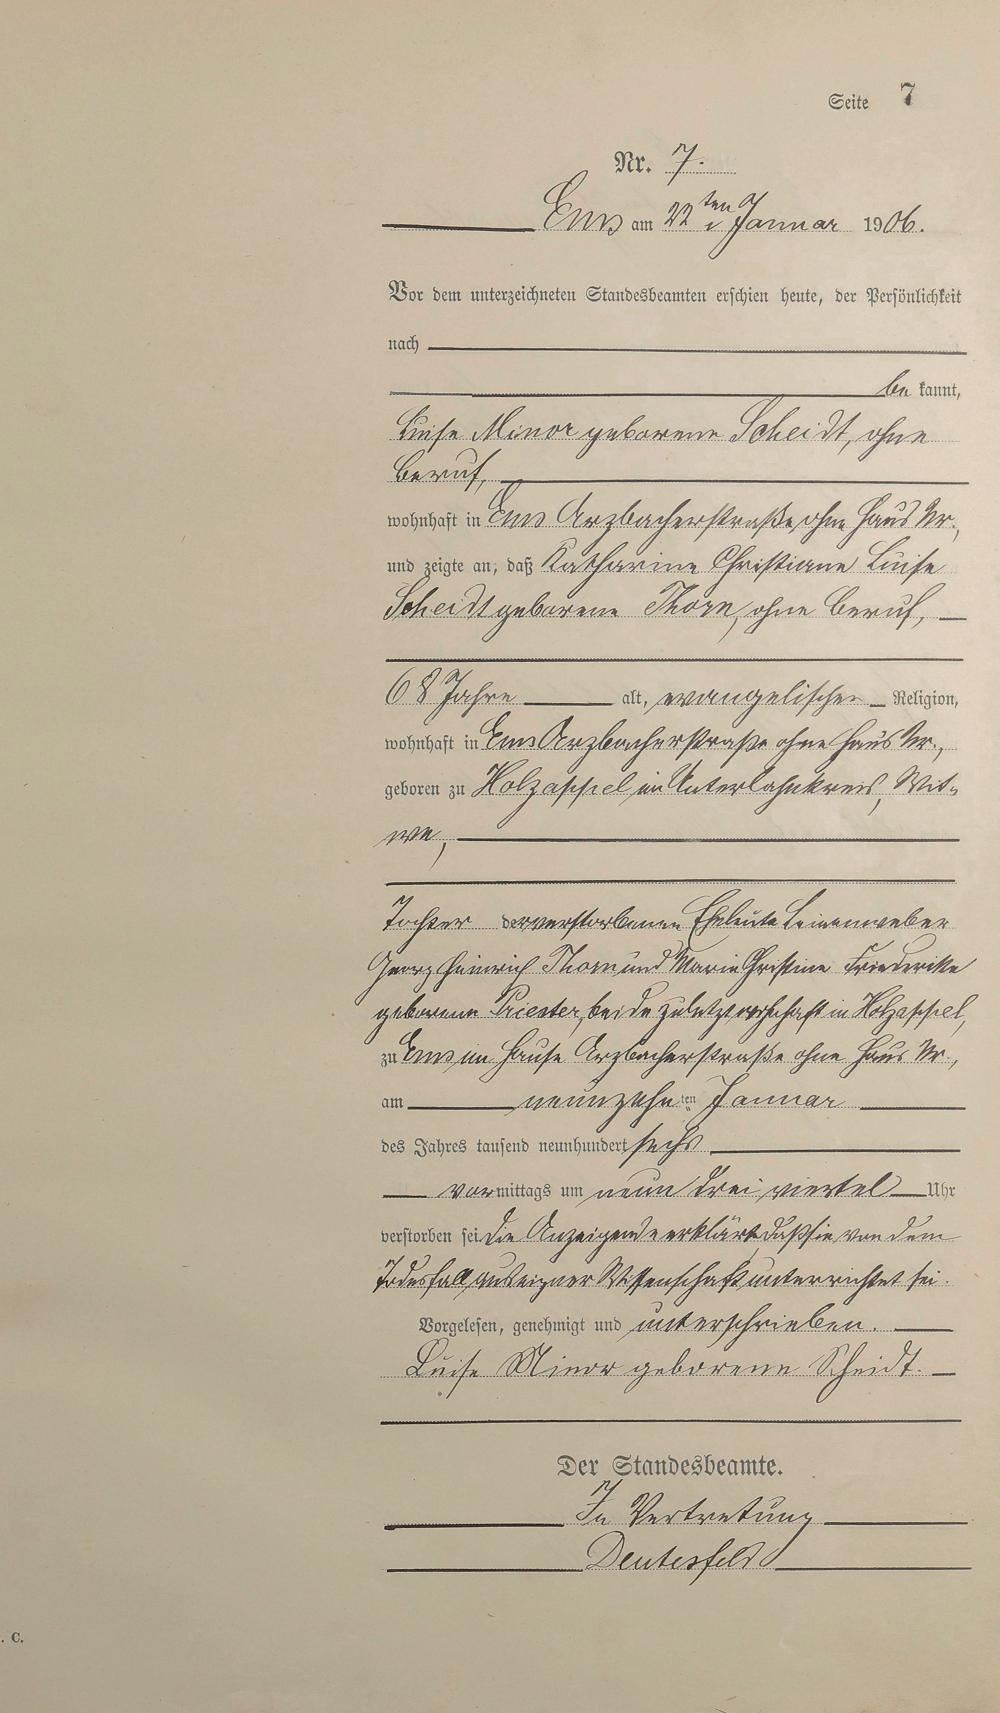 Seite 7
Nr. 7.
Ems am 22ten Januar 1906.
Vor dem unterzeichneten Standesbeamten erschien heute, der Persönlichkeit
nach
be kannt,
Luise Minor geborene Scheidt, ohne
Beruf,
wohnhaft in Ems Arzbacherstraße ohne Haus Nr.,
und zeigte an, daß Katharine Christiane Luise
Scheidt geborene Thorn, ohne Beruf,
68 Jahre alt, evangelischer Religion,
wohnhaft in Ems Arzbacherstraße ohne Haus Nr.,
geboren zu Holzappel im Unterlahnkreis, Wit-
we,
Tochter der verstorbenen Eheleute Leinenweber
Georg Heinrich Thorn und Marie Christine Friederike
geborene Priester, beide zuletzt wohnhaft in Holzappel,
zu Ems im Hause Arzbacherstraße ohne Haus Nr.,
am neunzehnten Januar
des Jahres tausend neunhundert sechs
vormittags um neun drei viertel Uhr
verstorben sei. Die Anzeigende erklärt, daß sie von dem
Todesfall aus eigner Wissenschaft unterrichtet sei.
Vorgelesen, genehmigt und unterschrieben.
Luise Minor geborene Scheidt.
Der Standesbeamte.
In Vertretung
Deutesfeld
. C.